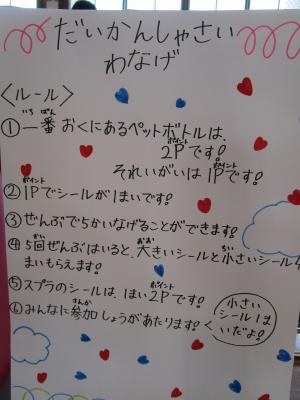 だいかんしゃさい
わなげ
〈ルール〉
①一番おくにあるペットボトルは、
2Pです!
それいがいは1Pです!
②1Pでシールが1まいです!
③ぜんぶで5かいなげることができます!
④5回ぜんぶはいると、大きいシールと小さいシール4
まいもらえます!
⑤スプラのシールは、はい2Pです!
⑥みんなに参加しょうがあたります!
小さい
シール1ま
いだよ!